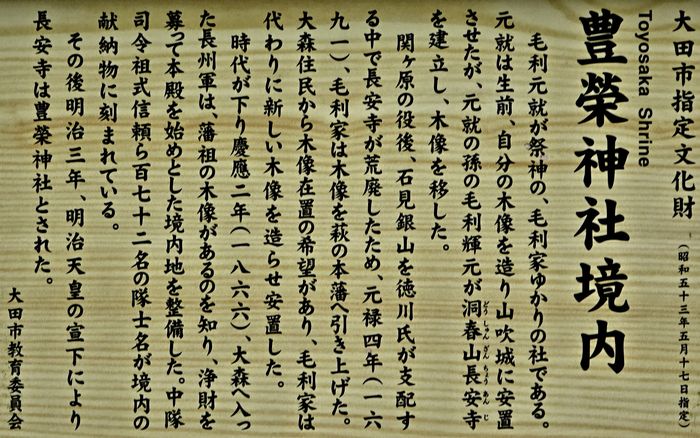 大田市指定文化財
（昭和五十三年五月十七日指定）
Toyosaka Shrine
豊榮神社境内
毛利元就が祭神の、毛利家ゆかりの社である。
元就は生前、自分の木像を造り山吹城に安置
させたが、元就の孫の毛利輝元が洞春山長安寺
どうしゅんざんちょうあんじ
を建立し、木像を移した。
関ヶ原の役後、石見銀山を徳川氏が支配す
る中で長安寺が荒廃したため、元禄四年（一六
九一）、毛利家は木像を萩の本藩へ引き上げた。
大森住民から木像在置の希望があり、毛利家は
代わりに新しい木像を造らせ安置した。
時代が下り慶應二年（一八六六）、大森へ入っ
た長州軍は、藩祖の木像があるのを知り、浄財を
募って本殿を始めとした境内地を整備した。中隊
司令祖式信頼ら百七十二名の隊士名が境内の
献納物に刻まれている。
その後明治三年、明治天皇の宣下により
長安寺は豊榮神社とされた。
大田市教育委員会